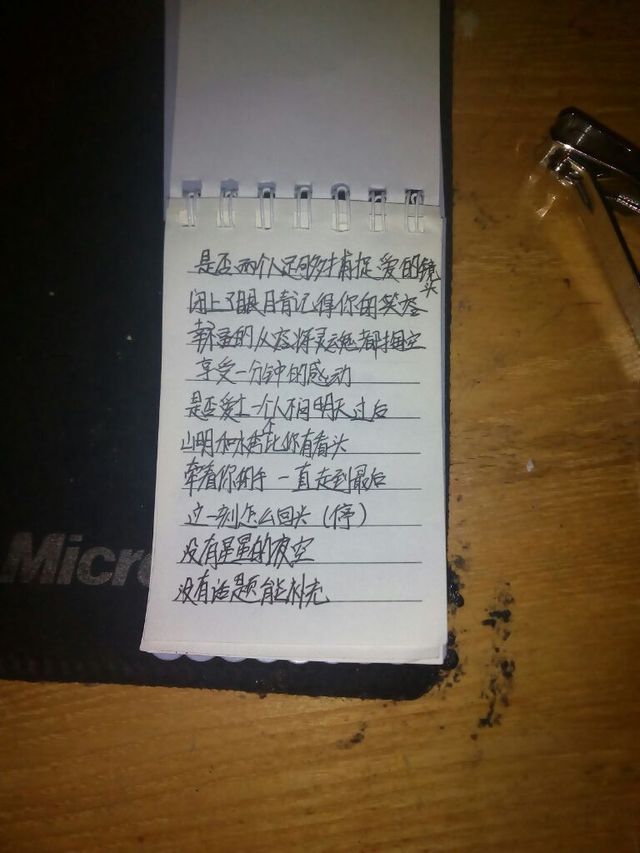 是否两个人还够捕捉爱的镜头
闭上了眼睛记得你的笑容
幸福的从容将灵魂都掏空
享受一分钟的感动
是否爱上一个人不问明天过后
山明和水秀不比你有看头
牵着你的手 一直走到最后
这一刻怎么回头(停)
没有星星的夜空
没有话题能补充
Micro